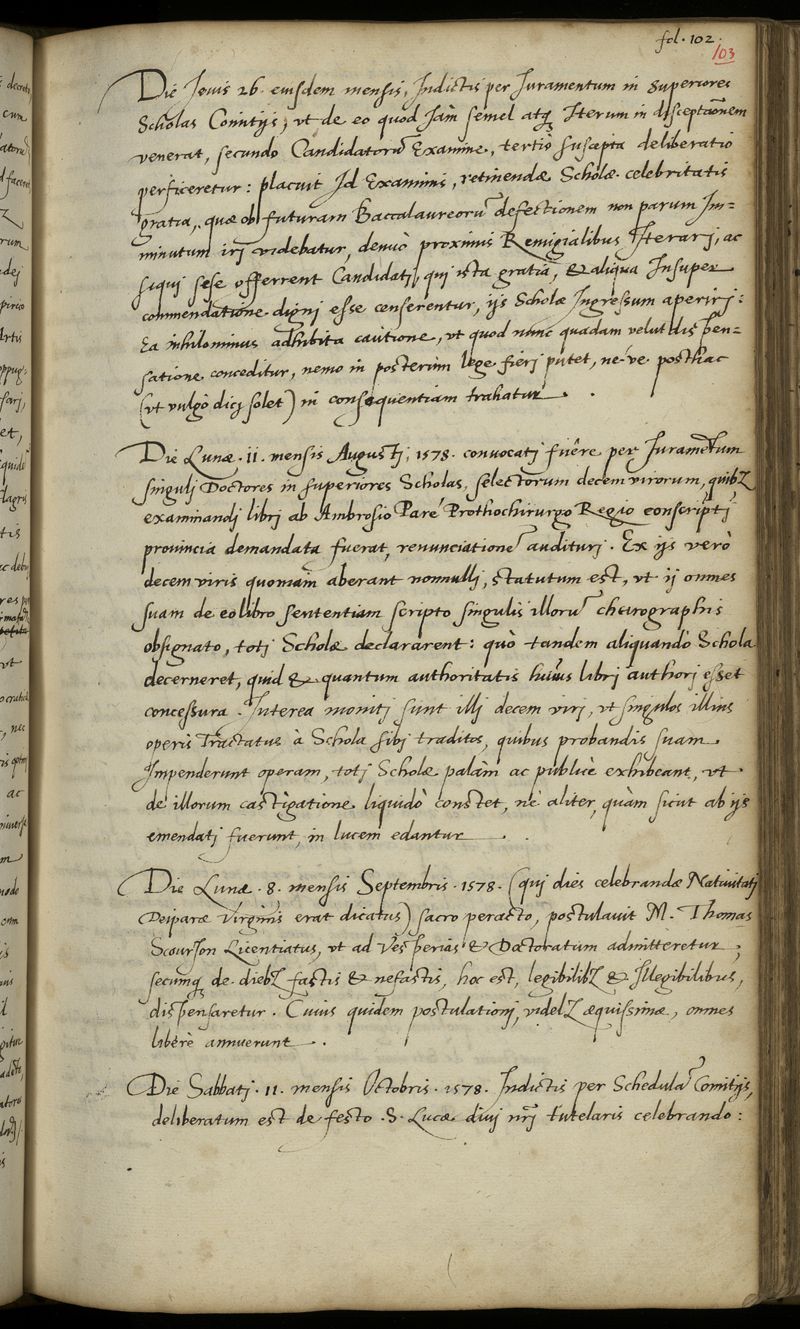 fol. 102.
103
Die Jouis 26. eiusdem mensis, Indictis per Iuramentum in superiores
Scholas Comitijs, vt de eo quod Iam semel atq, Iterum in disceptaõnem
venerat, secundo Candidatorũ Examine, tertiò suscepta deliberatio
perficeretur: placuit Id Examinis, retinendæ Scholæ celebritatis
gratia, quæ ob futuram Baccalaureorũ defectionem non parum Im=
minutum irj videbatur, denuò proximis Remigialibus Iterarj, ac
siqui sese offerrent Candidatj, quj ista gratiâ, & aliqua Insuper
commendatione dignj esse censerentur, ijs Scholæ Ingressum aperirj:
Ea nihilominus adhibita cautione, vt quod nunc quadam velut dispen=
satione conceditur, nemo in posterùm lege fierj putet, né-ve posthac
(vt vulgò dicj solet) in consequentiam trahatur.
Die Lunæ .11. mensis Augustj, 1578. conuocatj fuêre per Iuramẽtum
singulj Doctores in superiores Scholas, selectorum decem virorum, quibꝫ
examinandj librj ab Ambrosio Paré Prothochirurgo Regio conscriptj
prouincia demandata fuerat, renunciationẽ auditurj. Ex ijs verò
decem viris quoniam aberant nonnullj, statutum est, vt ij omnes
suam de eo libro sententiam scripto singulis illorũ cheirographis
obsignato, totj Scholæ declararent: quò tandem aliquandò Schola
decerneret, quid & quantum authoritatis huius librj authorj esset
concessura. Interea monitj sunt illj decem virj, vt singulos illius
operis Tractatus à Schola sibj traditos, quibus probandis suam
Impenderunt operam, totj Scholæ palàm ac publicè exhibeant, vt
de illorum castigatione liquidò constet, né aliter, quàm sicut ab ijs
emendatj fuerunt, in lucem edantur.
Die Lunæ .8. mensis Septembris .1578. (quj dies celebrandæ Natiuitatj
Deiparæ Virginis erat dicatus) sacro peracto, postulauit M. Thomas
Scourion Licentiatus, vt ad Vesperias & Doctoratum admitteretur,
secumq, de diebꝫ fastis & nefastis, hoc est, legibilibꝫ & Illegibilibus,
dispensaretur. Cuius quidem postulationj, videlꝫ æquissimæ, omnes
liberè annuerunt.
Die Sabbatj .11. mensis Octobris .1578. Indictis per Schedulã Comitijs,
deliberatum est de festo .S. Lucæ diuj nr̃j tutelaris celebrando: